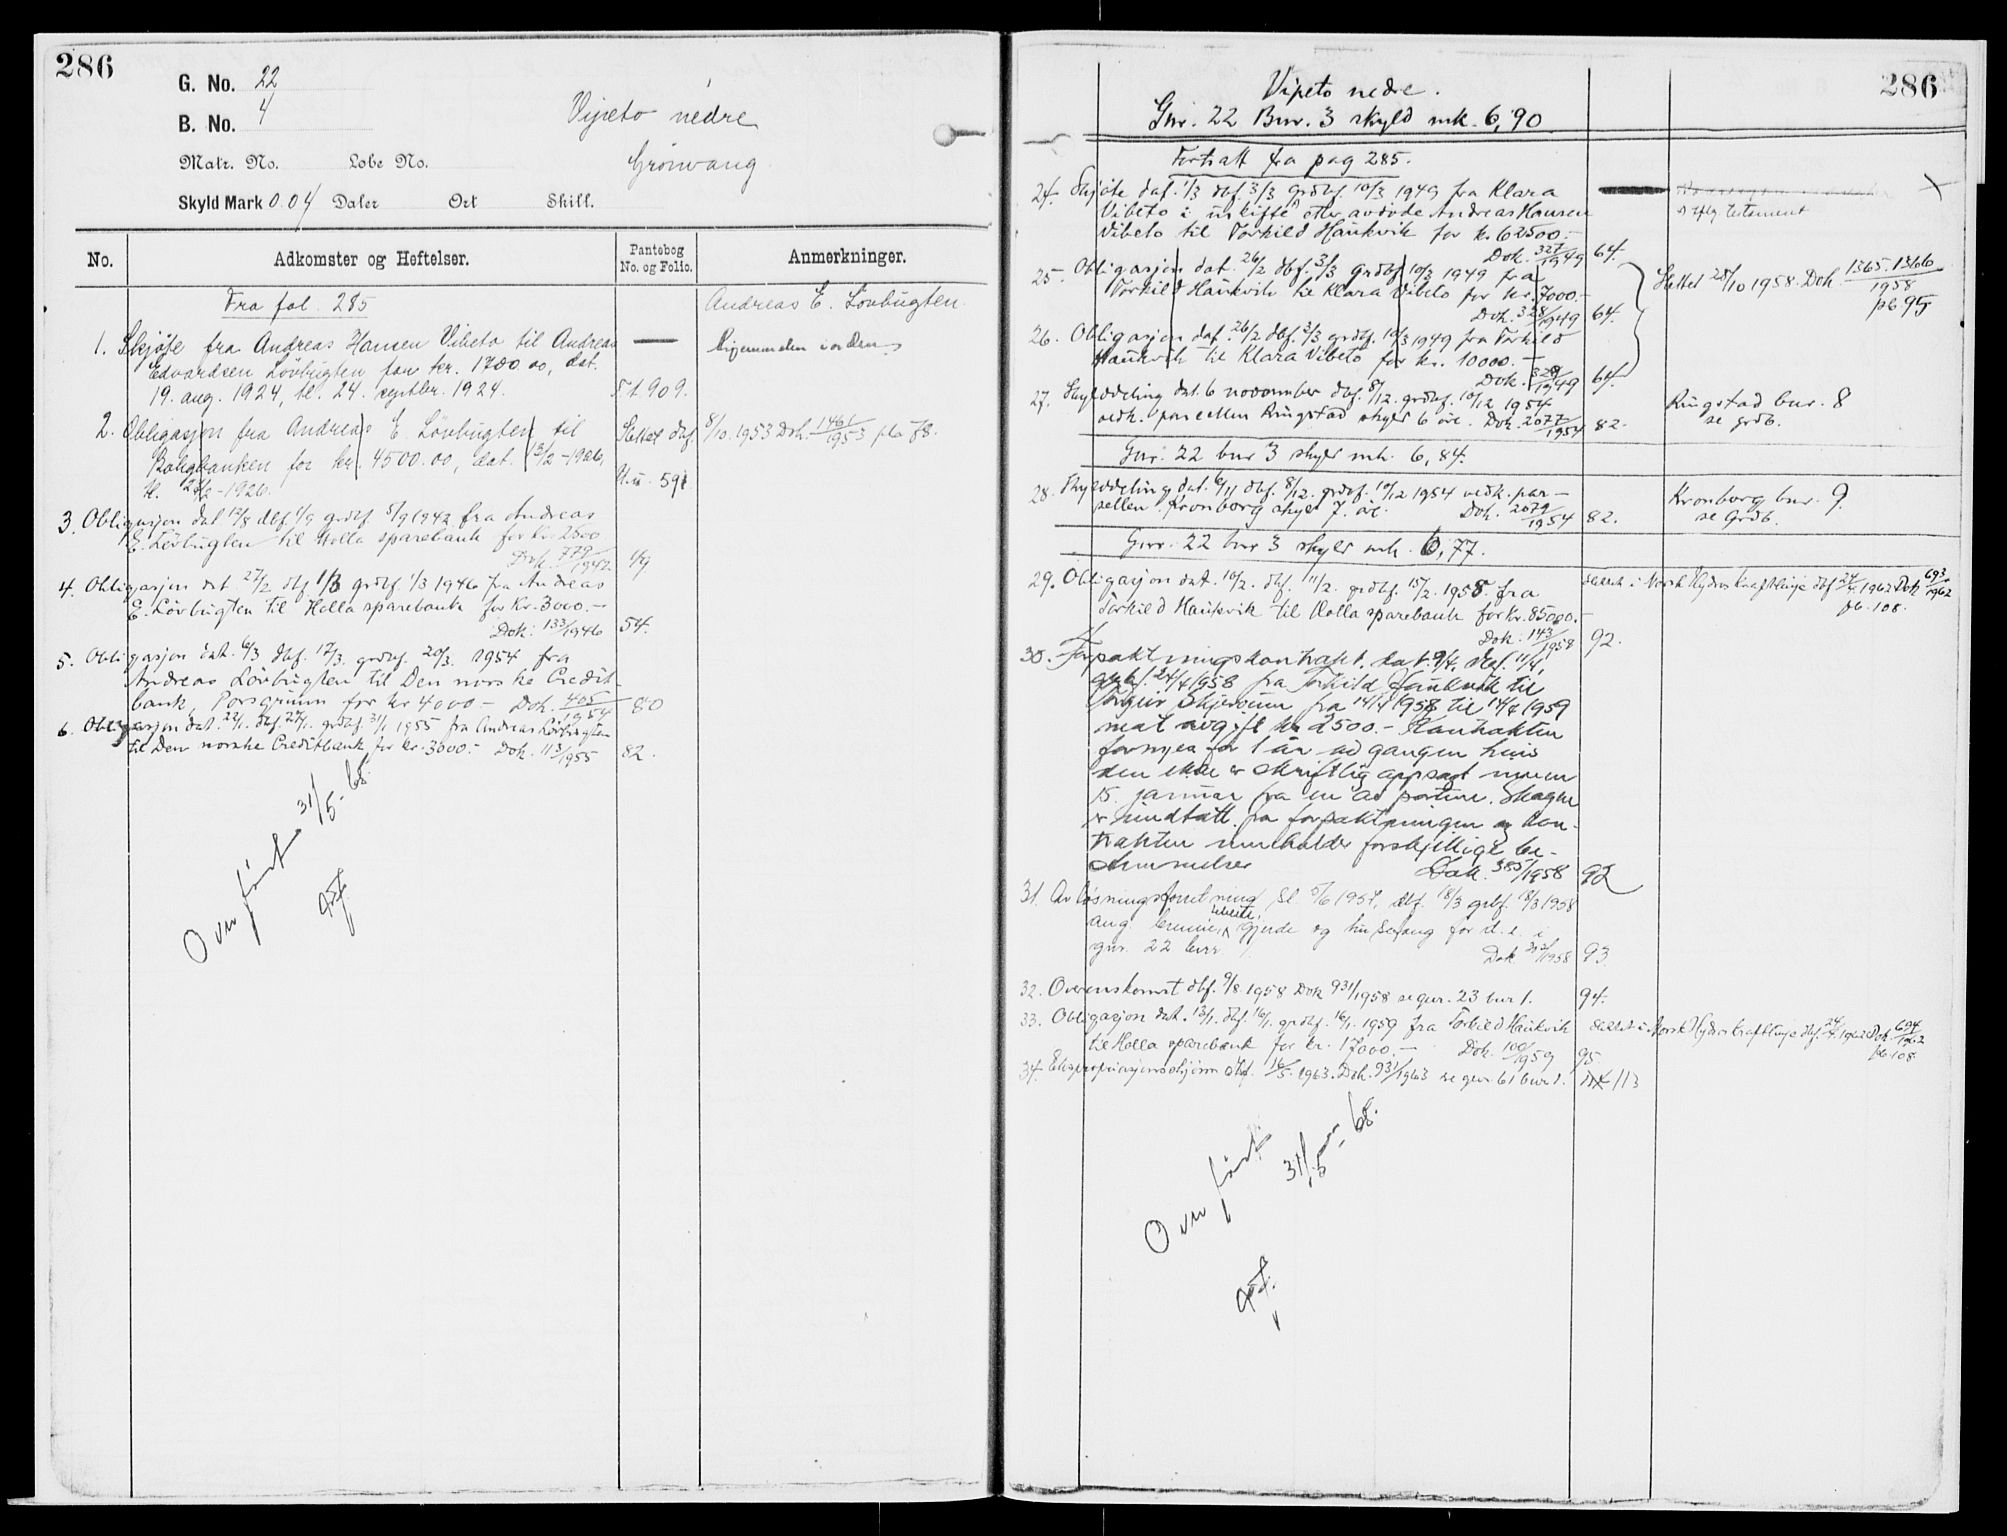 286
G. No. 22
B. No. 4
Vipeto nedre
Matr. No. Løbe No.
Grönvang
Skyld Mark 0.04 Daler Ort Skill.
No. Adkomster og Heftelser. Pantebog No. og Folio. Anmerkninger.
Fra fol. 285
Andreas E. Lövbugten
1. Skjöte fra Andreas Hansen Vibeto til Andreas
Edvardsen Lövbugten for kr. 1700.00, dat.
19. aug. 1924, tl. 24. septbr. 1924.
— Hjemmelen i orden
5t. 909.
2. Obligasjon fra Andreas E. Lövbugten til
Boligbanken for kr. 4500.00, dat. 13/2-1926,
tl. 24/2-1926.
Slettet dbf. 8/10.1953 Dok. 1461/1953 pb 78.
U.u. 591
3. Obligasjon dat 12/8 dbf 1/9 grdbf 5/9 1942 fra Andreas
E. Lövbugten til Holla sparebank for kr. 2500
Dok. 779/1942 49
4. Obligasjon dat. 27/2 dbf 1/3 grdbf 1/3 1946 fra Andreas
E. Lövbugten til Holla sparebank for kr. 3000.—
Dok. 133/1946 54.
5. Obligasjon dat. 6/3 dbf. 17/3. grdbf. 20/3. 1954 fra
Andreas Lövbugten til Den norske Credit-
bank, Porsgrunn for kr 4000 — Dok. 405/1954 80
6. Obligasjon dat. 22/1. dbf. 27/1. grdbf. 31/1 1955 fra Andreas Lövbugten
til Den norske Creditbank for kr. 3000.- Dok. 113/1955 82.
Overført 31/5-68.
286
Vipeto nedre.
Gnr. 22 Bnr. 3 skyld mk. 6,90
Fortsatt fra pag 285.
24. Skjöte dat. 1/3 dbf. 3/3 grdbf. 10/3 1949 fra Klara
Vibeto i uskifte etter avdöde Andreas Hansen
Vibeto til Torkild Haukvik for kr. 62500.-
Dok. 327/1949 64.
testament
X
25. Obligasjon dat. 26/2 dbf. 3/3 grdbf 10/3 1949 fra
Torkild Haukvik til Klara Vibeto for kr. 7000.-
Dok. 328/1949 64.
Slettet 28/10 1958. Dok. 1365.1366/1958
pb 95
26. Obligasjon dat. 26/2 dbf. 3/3 grdbf. 10/3 1949 fra Torkild
Haukvik til Klara Vibeto for kr. 10000.—
Dok. 329/1949 64.
27. Skylddeling dat. 6 november dbf. 8/12. grdbf. 10/12 1954
vedk. parcellen Ringstad skyld 6 öre. Dok. 2077/1954 82.
Ringstad bnr. 8
se grdb.
Gnr. 22 bnr 3 skyld mk. 6,84.
28. Skylddeling dat. 6/11 dbf. 8/12. grdbf. 10/12 1954 vedk. par-
sellen Kronborg skyld 7. öre. Dok. 2079/1954 82.
Kronborg bnr. 9.
se Grdb.
Gnr. 22 bnr 3 skyld mk. 6,77.
29. Obligasjon dat. 10/2. dbf. 11/2. grdbf. 15/2. 1958. fra
Torkild Haukvik til Holla sparebank for kr. 85000.-
Dok. 143/1958 92.
Slettet i Norsk Hydros kraftlinje dbf 24/4 1962 Dok 693/1962
pb. 108.
30. Forpaktningskontrakt. dat. 9/4. dbf. 11/4,
grdbf. 24/4 1958 fra Torkild Haukvik til
fra 14/4 1958 til 14/4 1959
mot avgift kr 2500.- Kontrakten
fornyes for 1 år ad gangen hvis
den ikke er skriftlig oppsagt innen
15. januar fra en av partene. Skogen
er unndtatt fra forpaktningen og kon-
trakten inneholder forskjellige be-
stemmelser Dok. 385/1958 92
31. Avlösningsforretning 5/6 1957, dbf. 18/3 grbf. 18/3 1958
ang. gjerde og for d. e. i
gnr. 22 bnr
Dok 1958 93.
32. Overenskomst dbf. 9/8 1958 Dok 931/1958 se gnr. 23 bnr 1. 94.
33. Obligasjon dat. 13/1. dbf. 16/1. grdbf. 16/1. 1959 fra Torkild Haukvik
til Holla sparebank for kr. 17000.— Dok. 100/1959 95
Slettet i Norsk Hydros kraftlinje dbf. 24/4 1962 Dok. 694/1962
pb. 108
34. Ekspropriasjonsskjönn dbf. 16/5. 1963. Dok. 931/1963 se gnr. 61 bnr 1. 113
Overført 31/5-68.